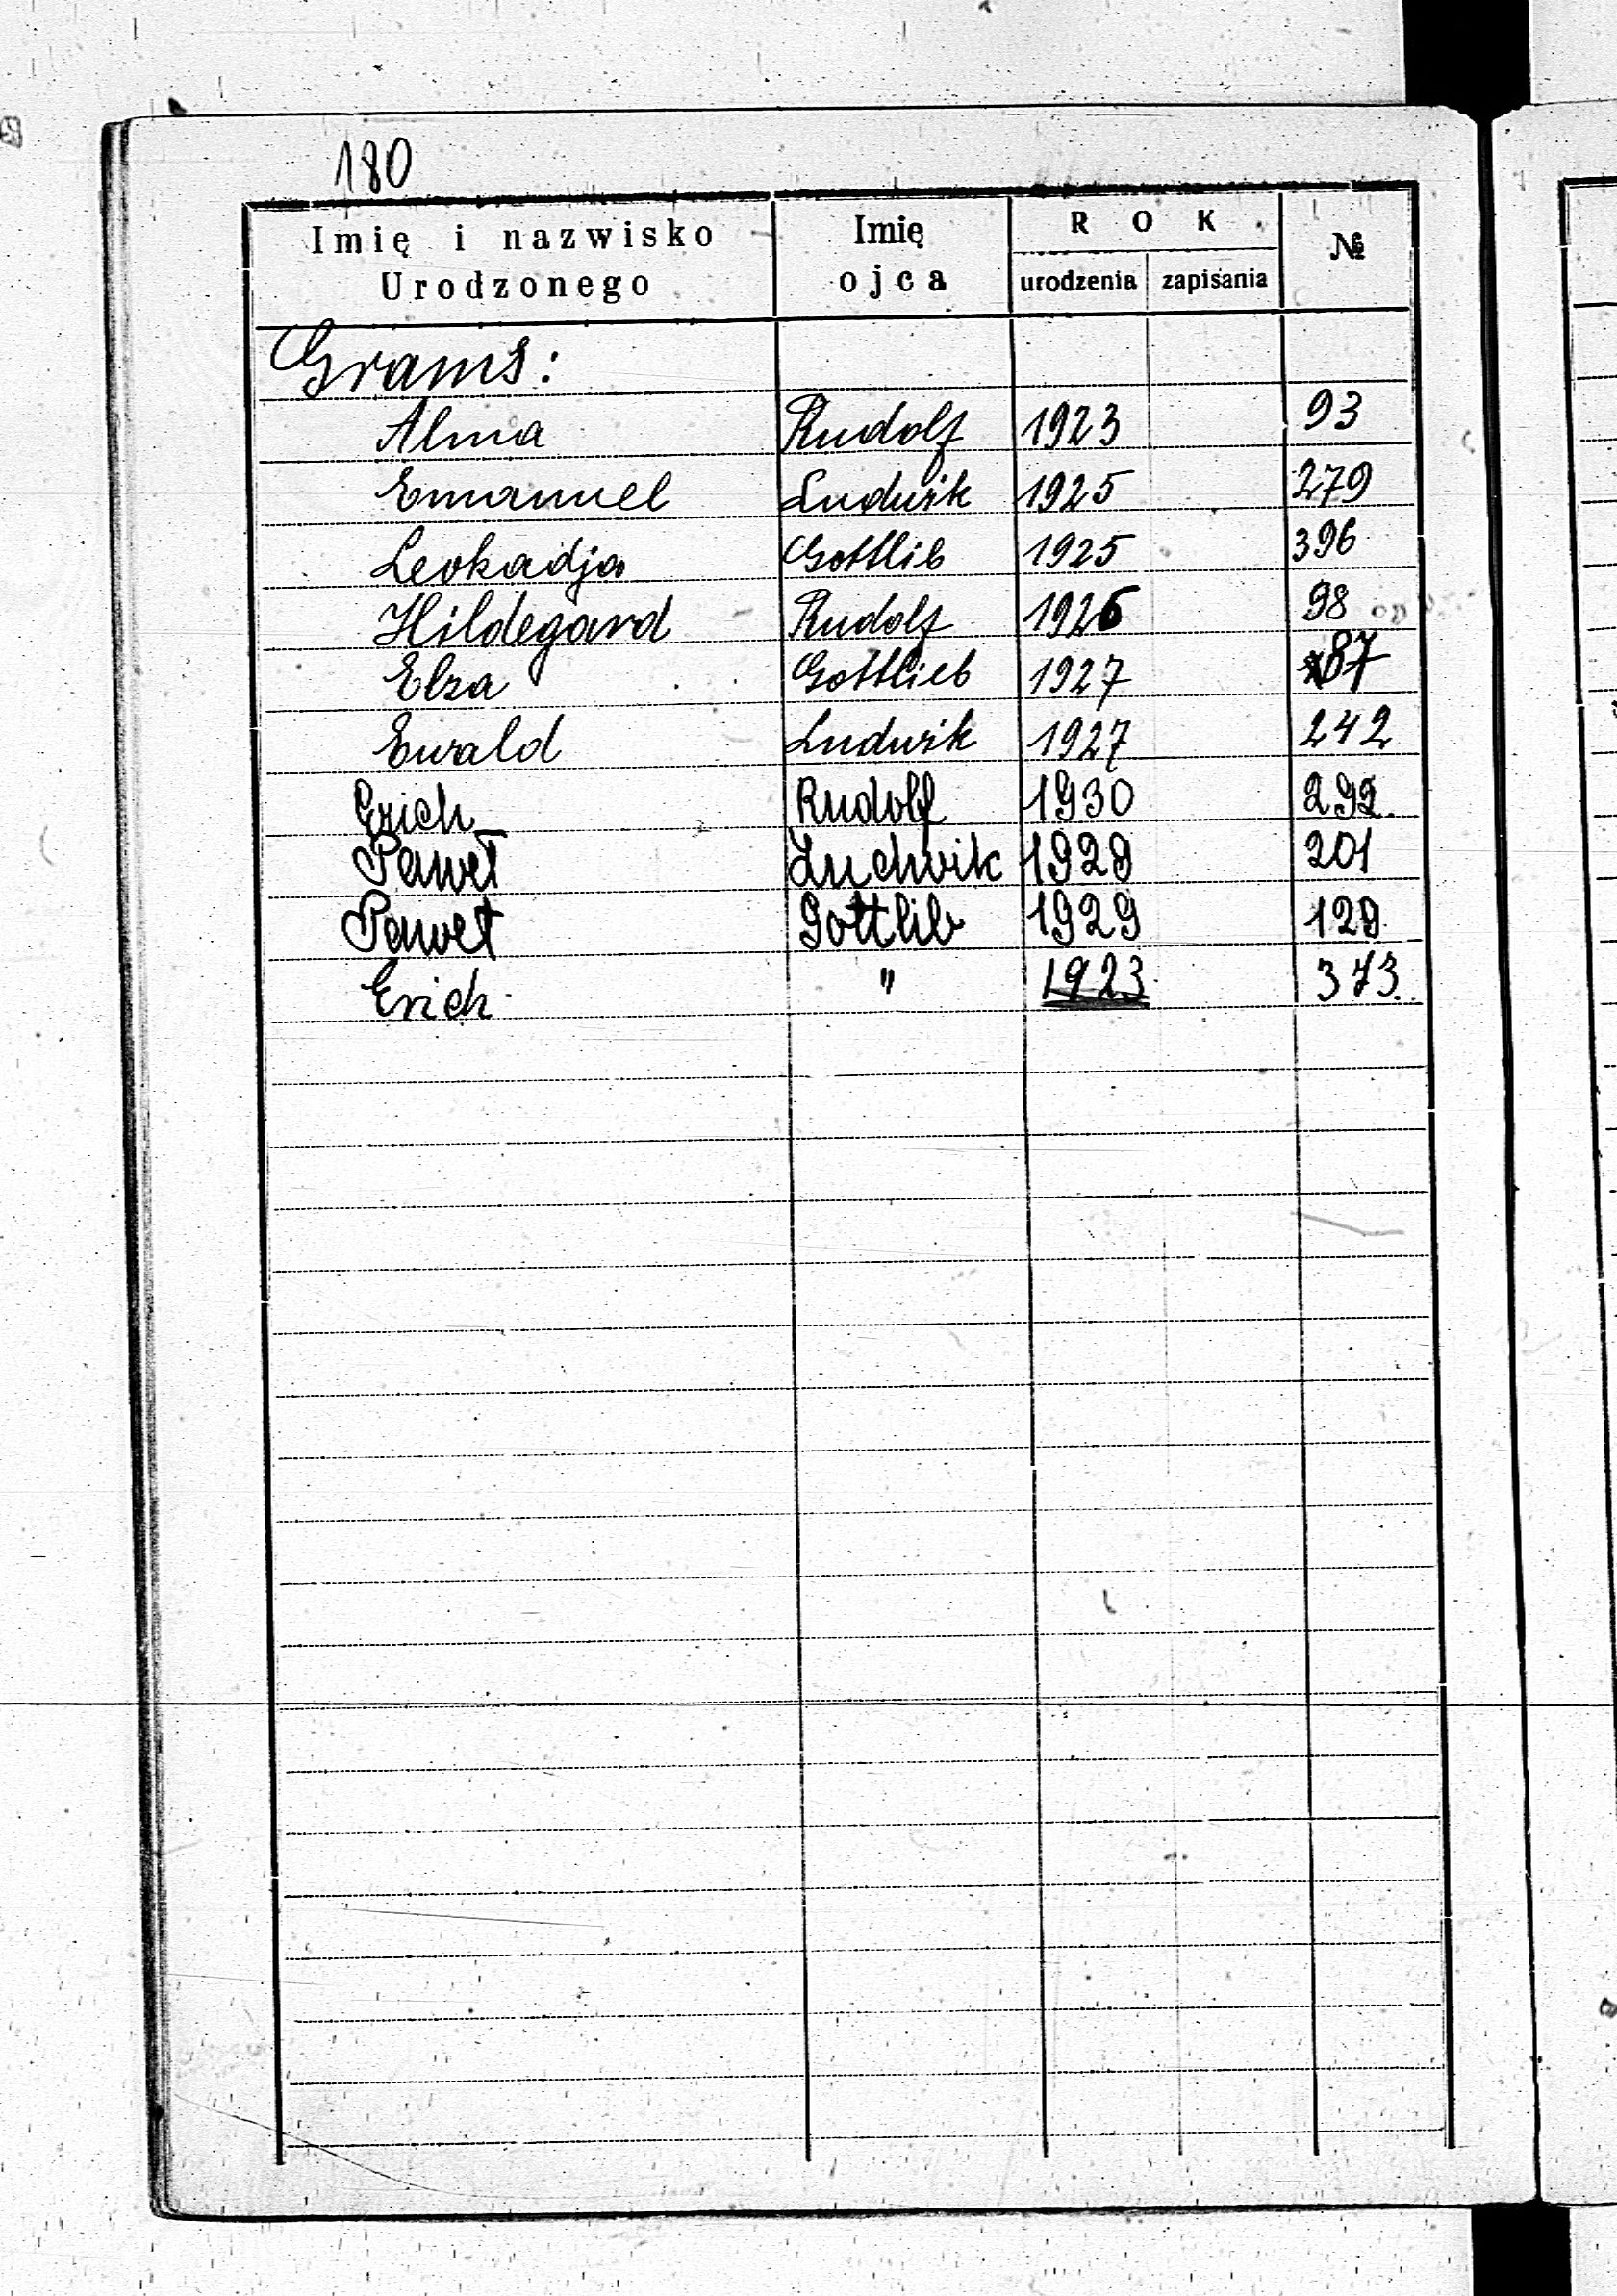 180
Imię i nazwisko Urodzonego Imię ojca R O K urodzenia zapisania №
Grams:
Alma Rudolf 1923 93
Emanuel Ludwik 1925 279
Leokadja Gottlib 1925 396
Hildegard Rudolf 1926 98
Elza Gottlieb 1927 87
Ewald Ludwik 1927 242
Erich Rudolf 1930 292.
Paweł Ludwik 1929 201
Paweł Gottlib 1929 129.
Erich " 1923 373.